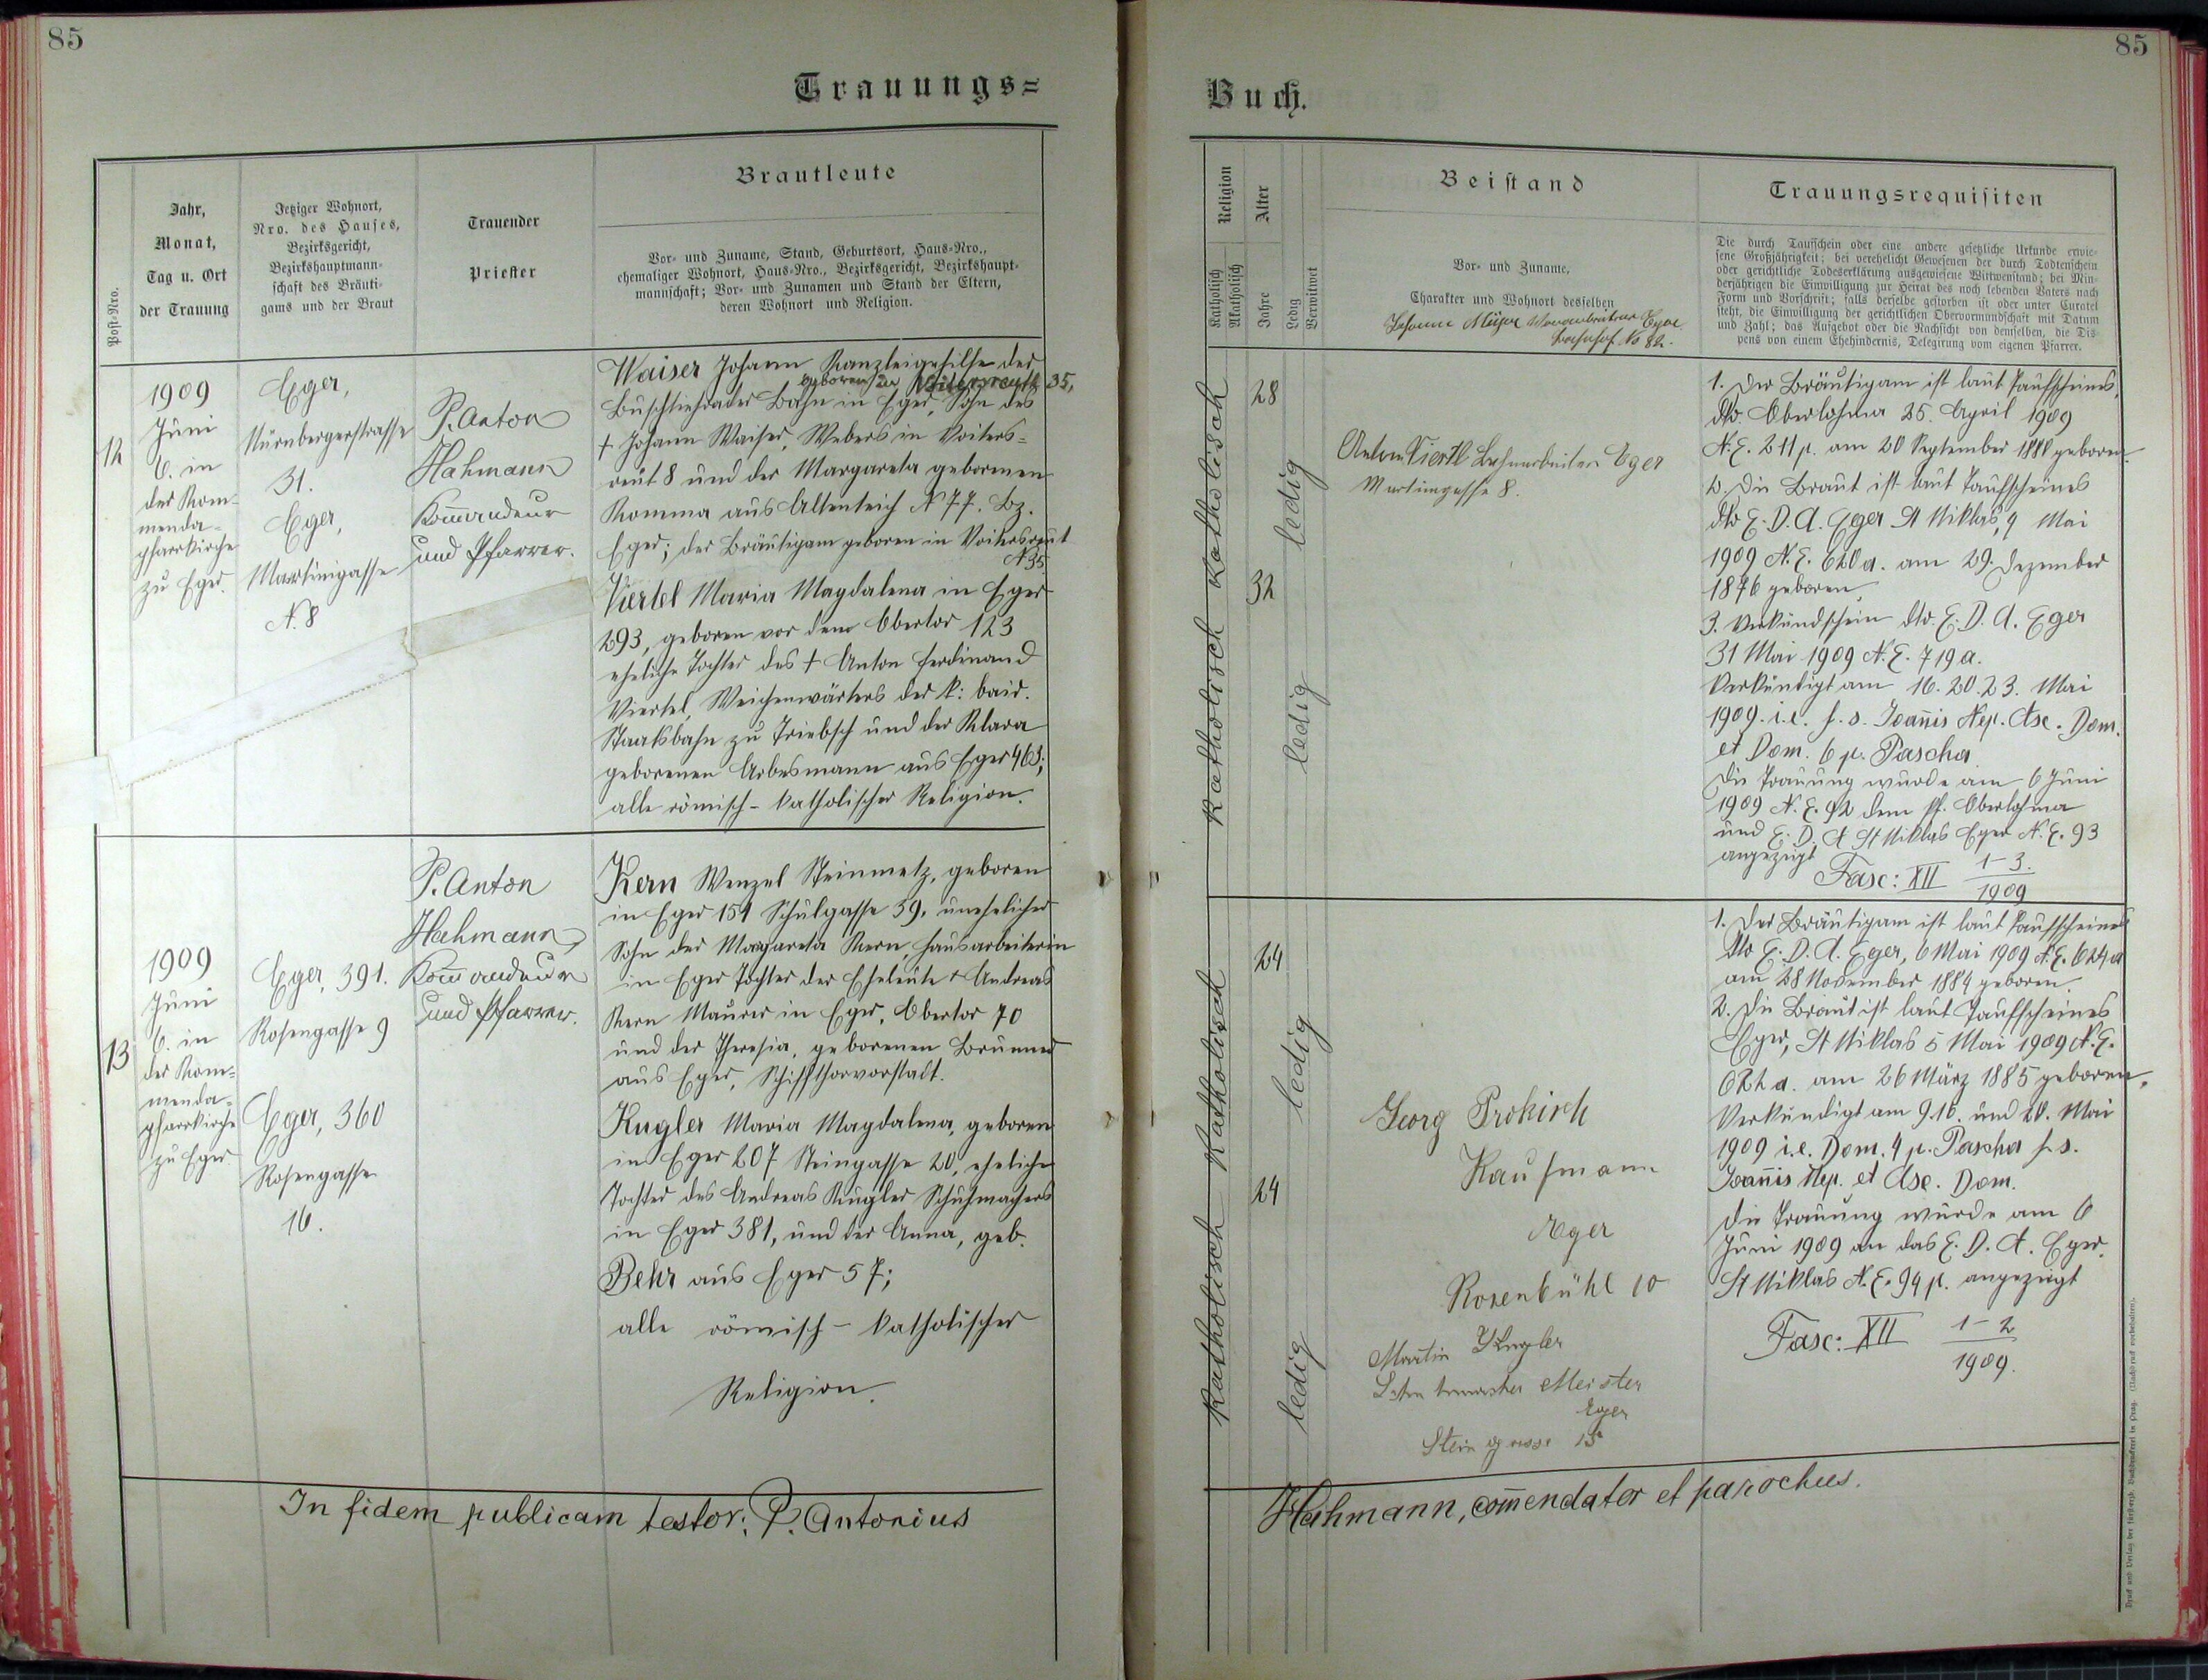 85
Trauungs=
Jahr,
Monat,
Tag u. Ort
der Trauung
Post-Nro.
Jetziger Wohnort,
Nro. des Hauses,
Bezirksgericht,
Bezirkshauptmann-
schaft des Bräuti-
gams und der Braut
Trauender
Priester
Brautleute
Vor- und Zuname, Stand, Geburtsort, Haus-Nro.,
ehemaliger Wohnort, Haus-Nro., Bezirksgericht, Bezirkshaupt-
mannschaft; Vor- und Zunamen und Stand der Eltern,
deren Wohnort und Religion.
12
1909
Juni
6. in
der Kom-
menda-
pfarrkirche
zu Eger.
Eger,
Nürnbergerstrasse
31.
Eger,
Martinigasse
N. 8
P. Anton
Hahmann
Kom̄andeur
und Pfarrer.
Waiser Johann Kanzleigehilfe der
geboren in Voitersreuth 35,
Buschtiehrader Bahn in Eger, Sohn des
† Johann Waiser, Webers in Voiters-
reut 8 und der Margareta geborenen
Komma aus Altenteich N 77. Bz.
Eger; der Bräutigam geboren in Voitersreut
N 35
Viertel Maria Magdalena in Eger
293, geboren vor dem Obertor 123
eheliche Tochter des † Anton Ferdinand
Viertel, Weichenwärters der k: bair.
Staatsbahn zu Triebsch und der Klara
geborenen Arbesmann aus Eger 463;
alle römisch-katholischer Religion.
13
1909
Juni
6. in
der Kom-
menda-
pfarrkirche
zu Eger.
Eger, 391.
Rosengasse 9
Eger, 360
Rosengasse
16.
P. Anton
Hahmann,
Kom̄andeur
und Pfarrer.
Kern Wenzel Steinmetz, geboren
in Eger 151 Schulgasse 39, unehelicher
Sohn der Margareta Kern, Hausarbeiterin
in Eger Tochter der Eheleute † Andreas
Kern Maurer in Eger, Obertor 70
und der Theresia, geborenen Brunner
aus Eger, Schiffthorvorstadt.
Kugler Maria Magdalena, geboren
in Eger 207 Steingasse 20, eheliche
Tochter des Andreas Kugler Schuhmachers
in Eger 381, und der Anna, geb.
Behr aus Eger 57;
alle römisch-katholischer
Religion.
In fidem publicam testor: P. Antonius
85
Buch.
Religion
Katholisch
Akatholisch
Alter
Jahre
Ledig
Verwitwet
Beistand
Vor- und Zuname,
Charakter und Wohnort desselben
Trauungsrequisiten
Die durch Taufschein oder eine andere gesetzliche Urkunde erwie-
sene Großjährigkeit; bei verehelicht Gewesenen der durch Todtenschein
oder gerichtliche Todeserklärung ausgewiesene Wittwenstand; bei Min-
derjährigen die Einwilligung zur Heirat des noch lebenden Vaters nach
Form und Vorschrift; falls derselbe gestorben ist oder unter Curatel
steht, die Einwilligung der gerichtlichen Obervormundschaft mit Datum
und Zahl; das Aufgebot oder die Nachsicht von demselben, die Dis-
pens von einem Ehehindernis, Delegirung vom eigenen Pfarrer.
Eger
Bahnhof No 82.
katholisch
katholisch
28
32
ledig
ledig
Anton Viertl Bahnarbeiter Eger
Martingasse 8.
1. Der Bräutigam ist laut Taufscheines,
dto. Oberlohma 25. April 1909
N. E. 211 p. am 20 September 1880 geboren.
2. Die Braut ist laut Taufscheines
dto E. D. A. Eger St Niklas, 9 Mai
1909 N. E. 620 a. am 29. Dezember
1876 geboren
3. Verkündschein dto. E. D. A. Eger
31 Mai 1909 N. E. 719 a.
Verkündigt am 16. 20. 23. Mai
1909. i. e. f. s. Joan̄is Nep. Asc. Dom.
et Dom. 6 p. Pascha
Die Trauung wurde am 6 Juni
1909 N. E. 92 dem Pf. Oberlohma
und E. D. A St Niklas Eger N. E. 93
angezeigt
Fasc: XII 1-3.
1909
katholisch
katholisch
24
24
ledig
ledig
Georg Prokisch
Kaufmann
Eger
Rosenbühl 10
Martin Kugler
Meister
Eger
Steingasse 15
1. Der Bräutigam ist laut Taufscheines
dto E. D. A. Eger, 6 Mai 1909 N. E. 624 a
am 28 November 1884 geboren.
2. Die Braut ist laut Taufscheines
Eger, St Niklas 5 Mai 1909 N. E.
622 a. am 26 März 1885 geboren.
Verkündigt am 9. 16. und 20. Mai
1909 i. e. Dom. 4 p. Pascha f. s.
Joan̄is Nep. et Asc. Dom.
Die Trauung wurde am 6
Juni 1909 an das E. D. A. Eger.
St Niklas N. E. 94 p. angezeigt
Fasc: XII 1-2
1909.
Hahmann, com̄endator et parochus.
Druck und Verlag der fürsterzb. Buchdruckerei in Prag. (Nachdruck vorbehalten).